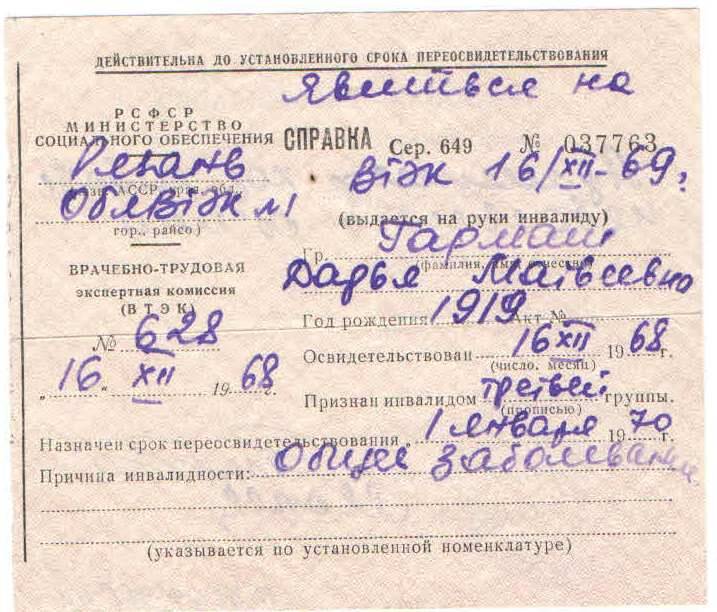 ДЕЙСТВИТЕЛЬНА ДО УСТАНОВЛЕННОГО СРОКА ПЕРЕОСВИДЕТЕЛЬСТВОВАНИЯ
Явиться на
РСФСР
МИНИСТЕРСТВО
СОЦИАЛЬНОГО ОБЕСПЕЧЕНИЯ
Рязань
ОблВТЭК №1
гор., райсо)
ВРАЧЕБНО-ТРУДОВАЯ
экспертная комиссия
(ВТЭК)
№ 628
"16" XII 1968 г.
СПРАВКА Сер. 649 № 037763
ВТЭК 16/XII-69г.
(выдается на руки инвалиду)
Гр. Гармаш
(фамилия, имя, отчество)
Дарья Матвеевна
Год рождения 1919 Акт №
Освидетельствован 16 XII 1968 г.
(число, месяц)
Признан инвалидом третьей группы.
(прописью)
Назначен срок переосвидетельствования "1 января 1970 г.
Причина инвалидности: Общее заболевание
(указывается по установленной номенклатуре)